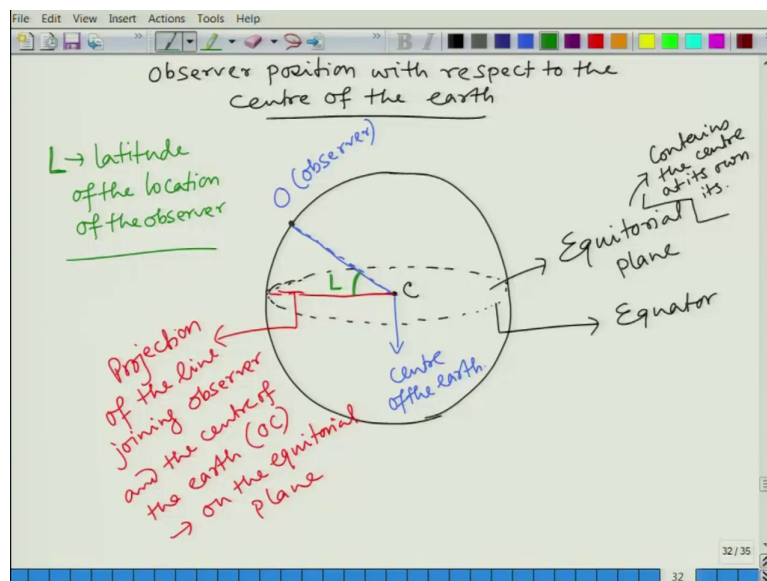 File Edit View Insert Actions Tools Help
Observer position with respect to the
centre of the earth
L → latitude
of the location
of the observer
O (observer)
Contains
the centre
at its own
its.
Equitorial
plane
L
C
Equator
centre
of the earth.
Projection
of the line
joining observer
and the centre of
the earth (OC)
→ on the equitorial
plane
32 / 35
32